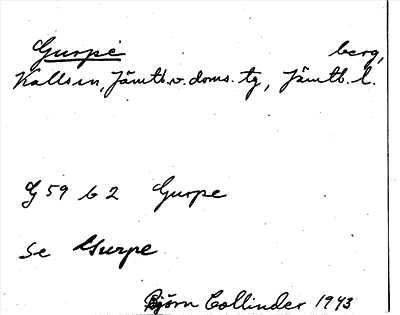 Gurpe berg,
Kallsen, Jämtl.v. doms. tg, Jämtl. l.
G 59 b 2 Gurpe
Se Gurpe
Björn Collinder 1943